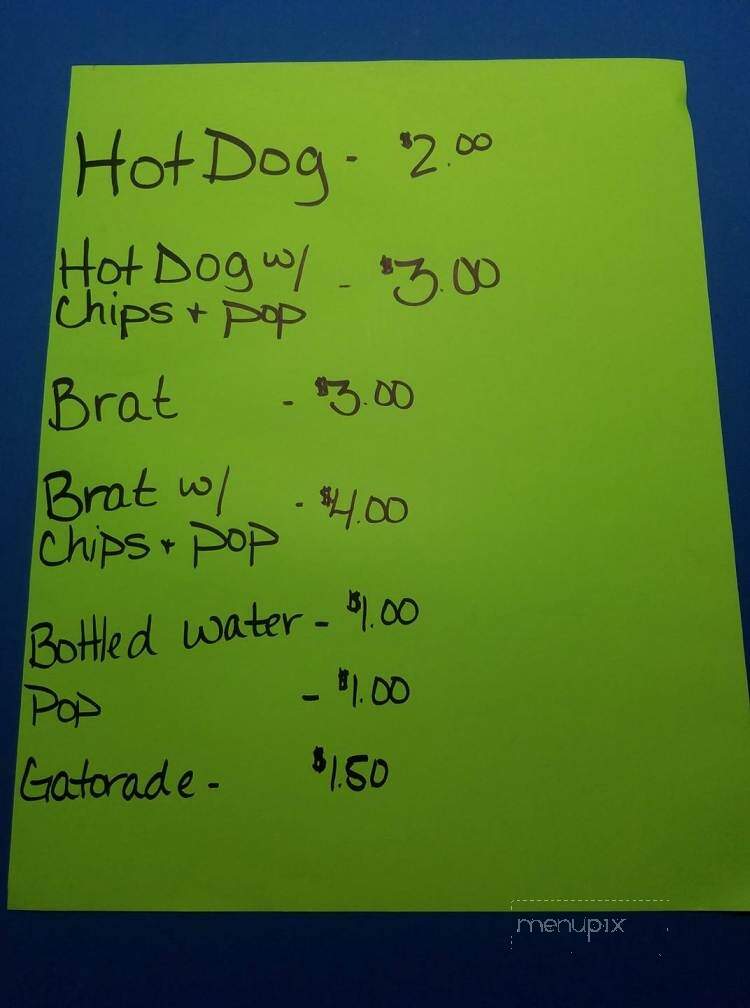 Hot Dog - $2.00
Hot Dog w/ - $3.00
Chips + pop
Brat - $3.00
Brat w/ - $4.00
Chips + pop
Bottled water - $1.00
Pop - $1.00
Gatorade - $1.50
menupix